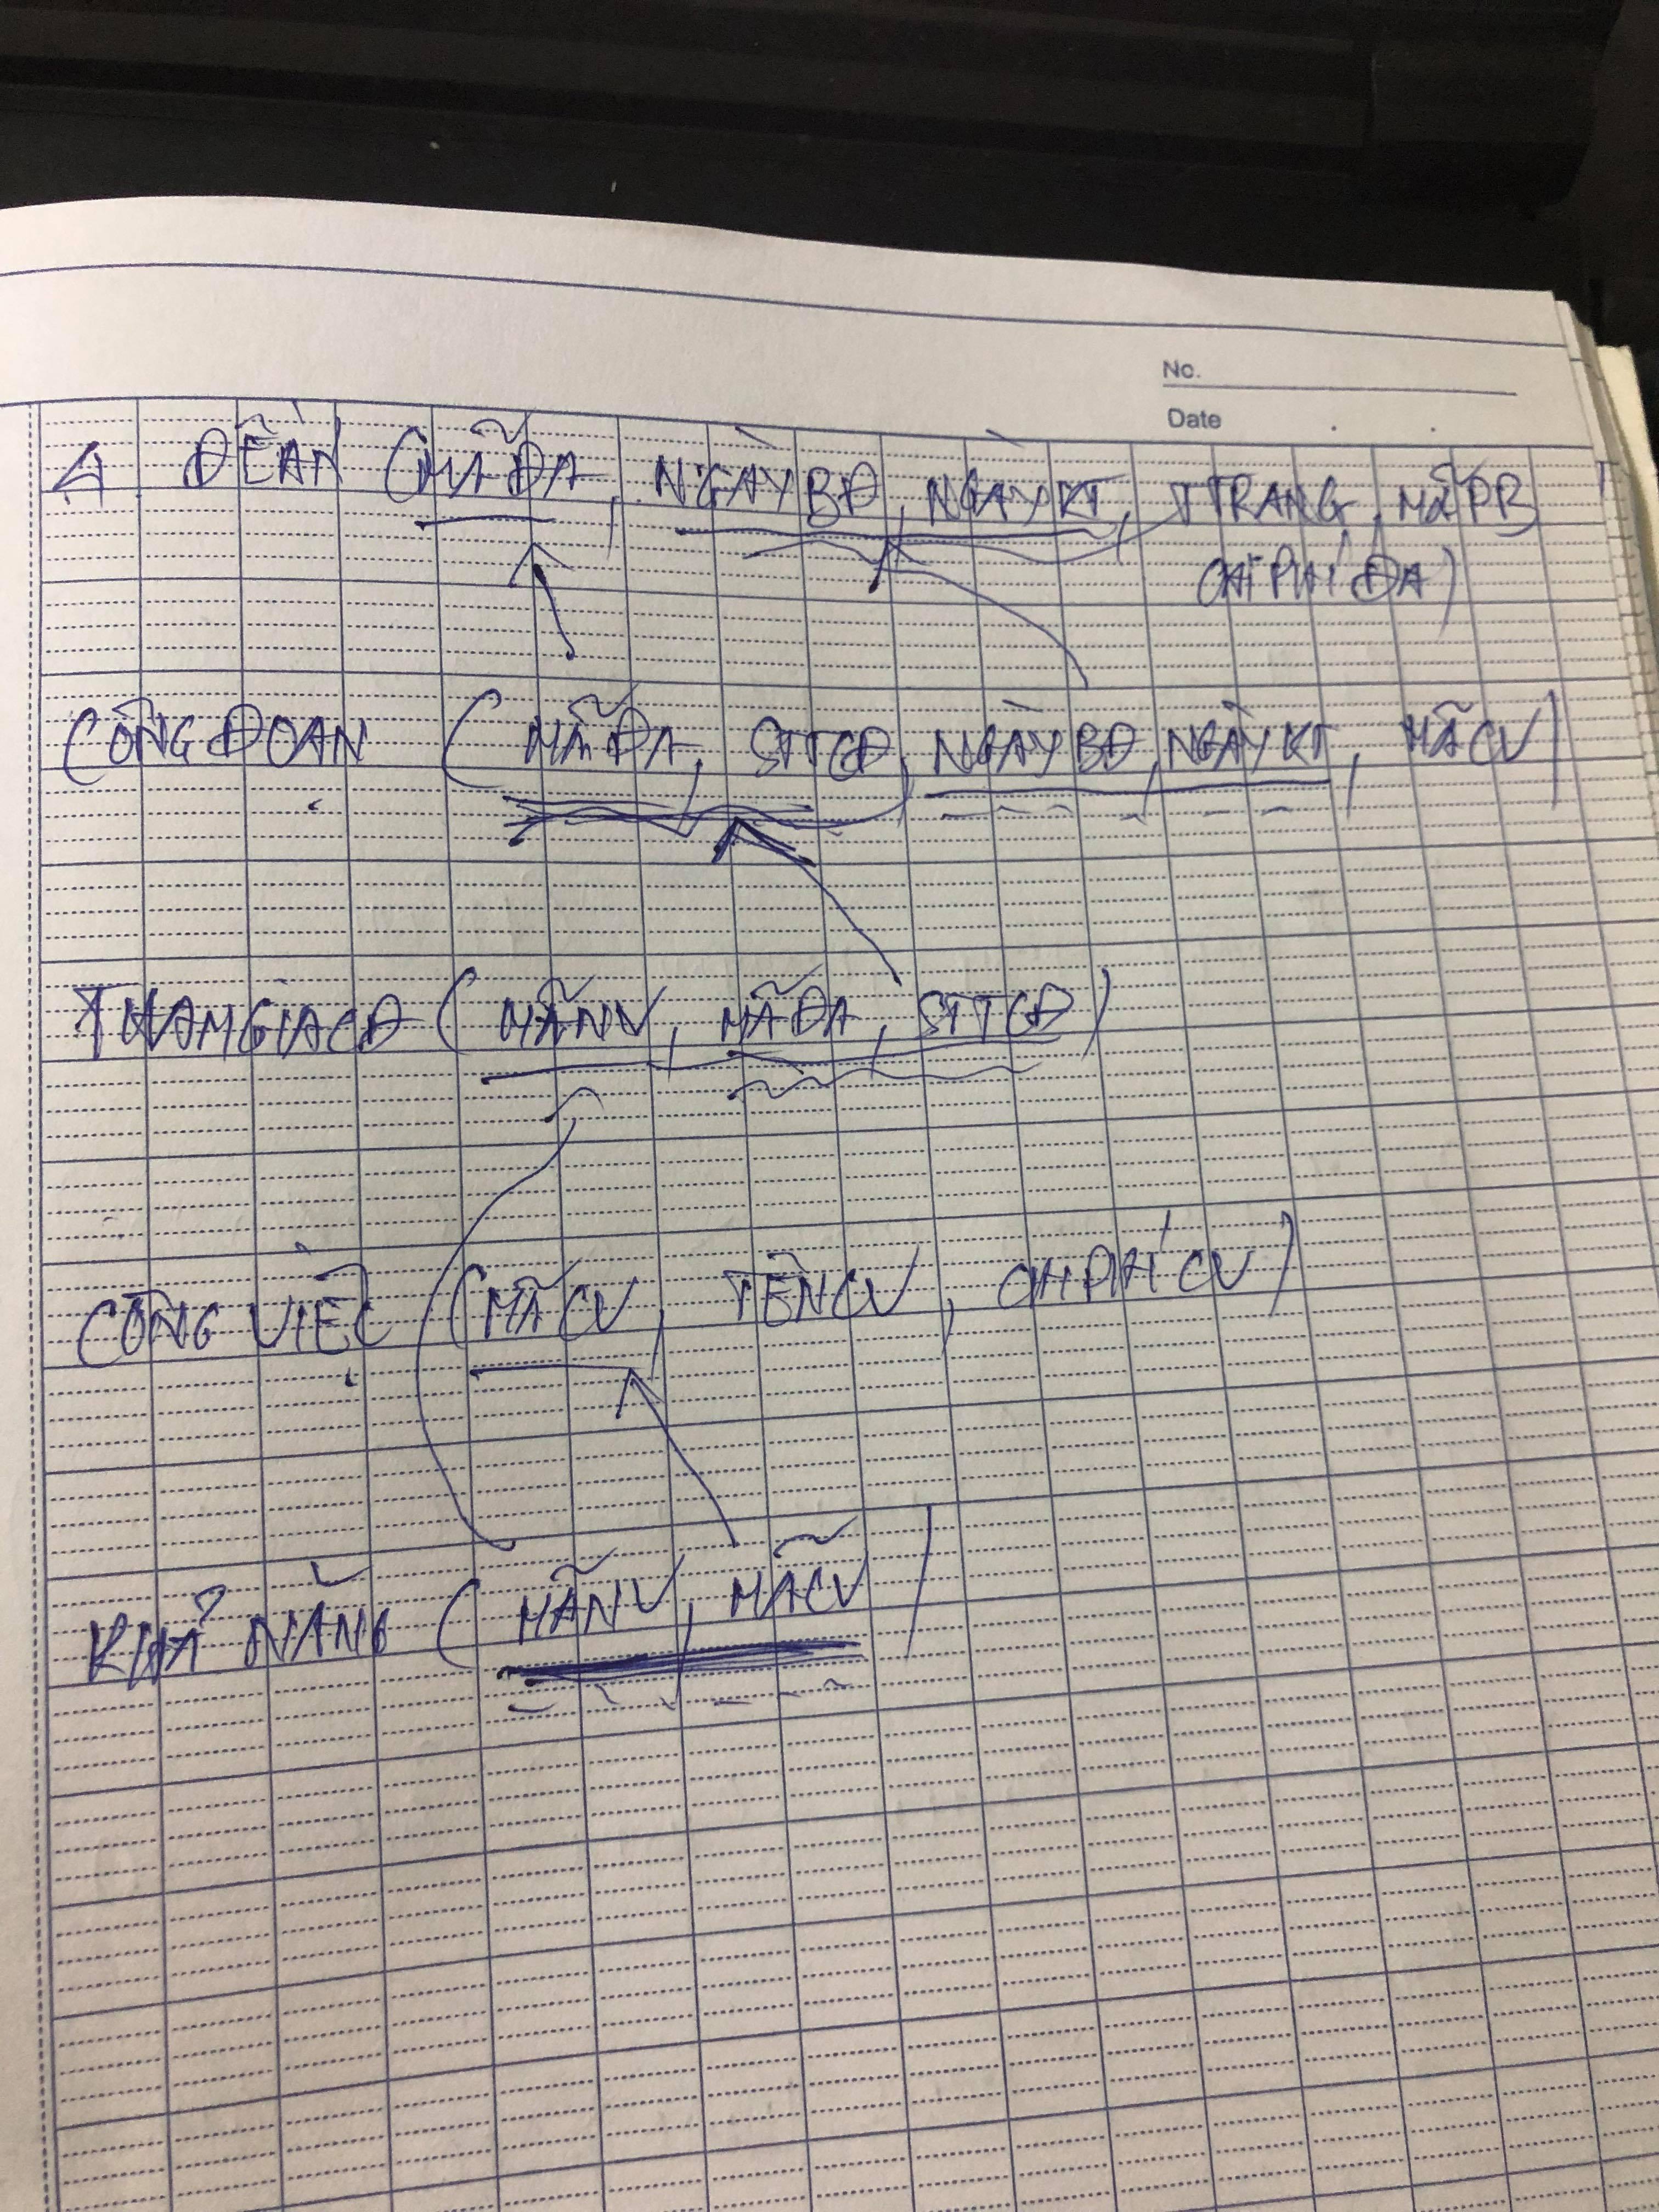 No.
Date
4. ĐỀ ÁN (MÃĐA, NGÀYBĐ, NGÀYKT, TTRANG, MÃPB
CHIPHÍĐA)
CÔNG ĐOẠN (MÃĐA, STTCĐ, NGÀYBĐ, NGÀYKT, MÃCV)
THAMGIACĐ (MÃNV, MÃĐA, STTCĐ)
CÔNG VIỆC (MÃCV, TÊNCV, CHIPHÍCV)
KHẢ NĂNG (MÃNV, MÃCV)